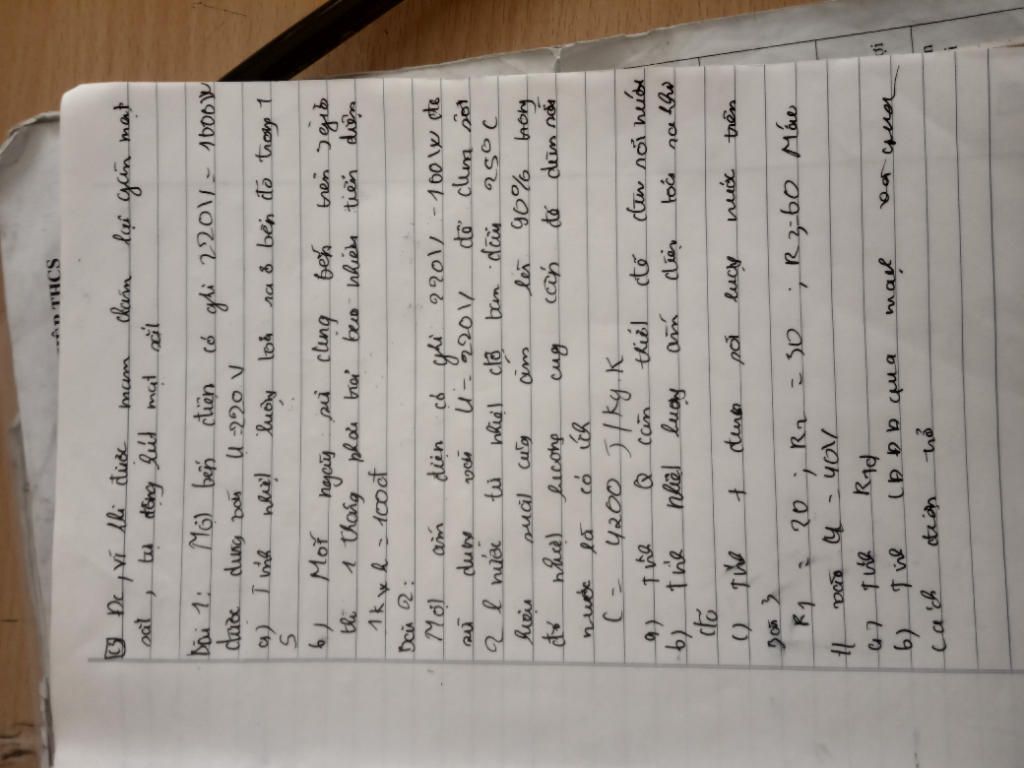 Đc, vì khi được nam châm lại gần mạt
sắt, tự động hút mạt sắt
Bài 1: Một bếp điện có ghi 220V - 1000W
được dùng với U=220V
a) Tính nhiệt lượng toả ra ở bếp đó trong 1
s
b) Mỗi ngày sử dụng bếp trên 2giờ
thì 1 tháng phải trả bao nhiêu tiền điện
1kWh = 1000đ
Bài 2:
Một ấm điện có ghi 220V - 1000W để
sử dụng với U=220V để đun sôi
2 l nước từ nhiệt độ ban đầu 25°C
hiệu suất của ấm là 90% trong
đó nhiệt lượng cung cấp để đun nóng
nước là có ích
C = 4200 J/kg.K
a) Tính Q cần thiết để đun sôi nước
b) Tính nhiệt lượng ấm điện toả ra khi
đó
c) Tính t đun sôi lượng nước trên
Bài 3
R1 = 20 ; R2 = 30 ; R3=60 Mắc
với U = 40V
a) Tính Rtđ
b) Tính CĐDĐ qua mạch
Cách điện trở
THCS